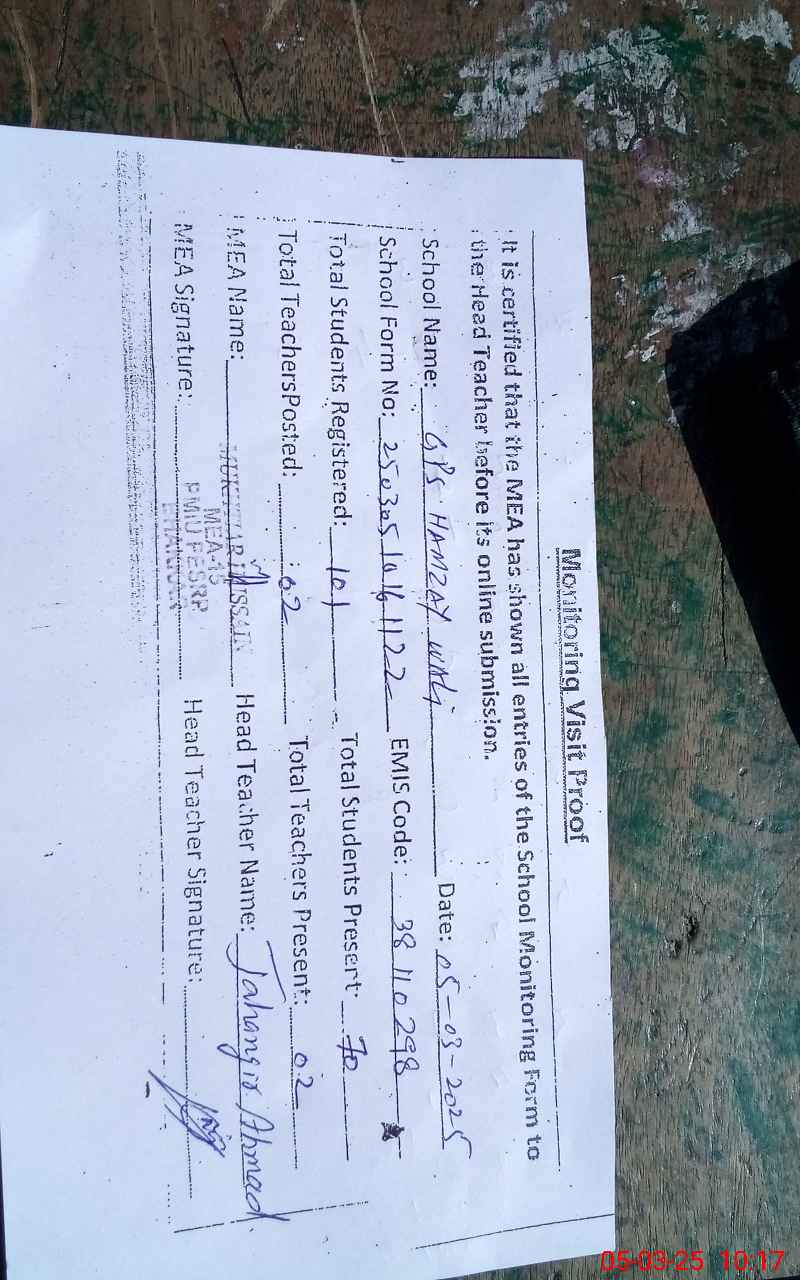 Monitoring Visit Proof
It is certified that the MEA has shown all entries of the School Monitoring Form to
the Head Teacher before its online submission.
School Name: GPS HAMZAY WALI Date: 05-03-2025
School Form No: 250305 1122 EMIS Code: 38110298
Total Students Registered: 101 Total Students Present: 70
Total TeachersPosted: 02 Total Teachers Present: 02
MEA Name: Head Teacher Name: Jahangir Ahmad
MEA-15
PMU PESRP
BHAKKAR
MEA Signature: Head Teacher Signature:
05-03-25 10:17